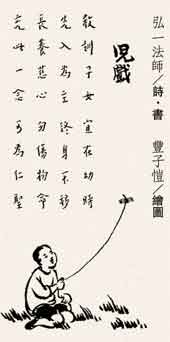 弘一法師／詩・書　豐子愷／繪圖
兒戲
教訓子女　宜在幼時
先入為主　終身不移
長養慈心　勿傷物命
充此一念　可為仁聖